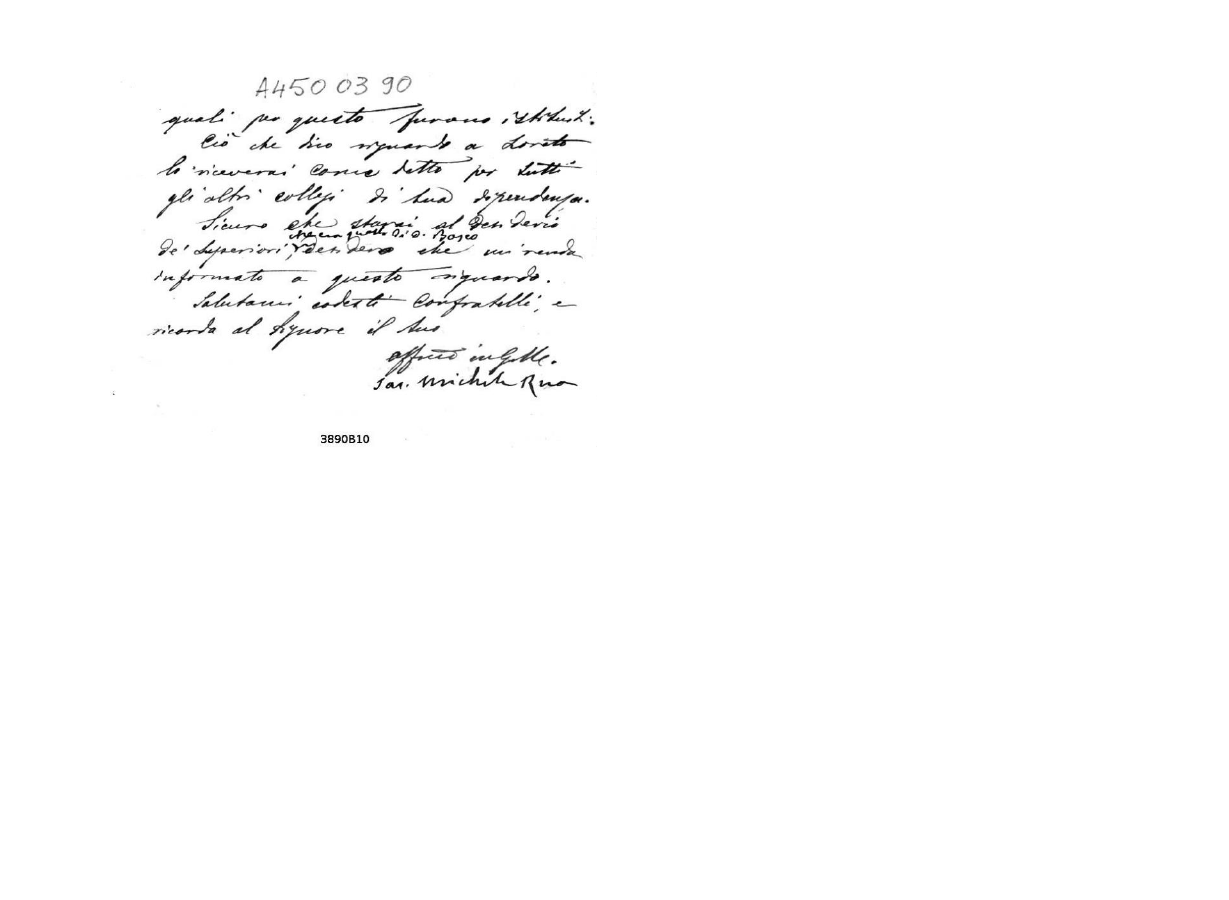 A450 03 90
quali per questo furono istituiti.
Ciò che dico riguardo a Loreto
lo riceverai come detto per tutti
gli altri collegi di tua dipendenza.
Sicuro che starai al desiderio
che era quello di D. Bosco
de' Superiori, desidero che mi renda
informato a questo riguardo.
Salutami codesti Confratelli, e
ricorda al Signore il tuo
affmo in G. e M.
Sac. Michele Rua
3890B10